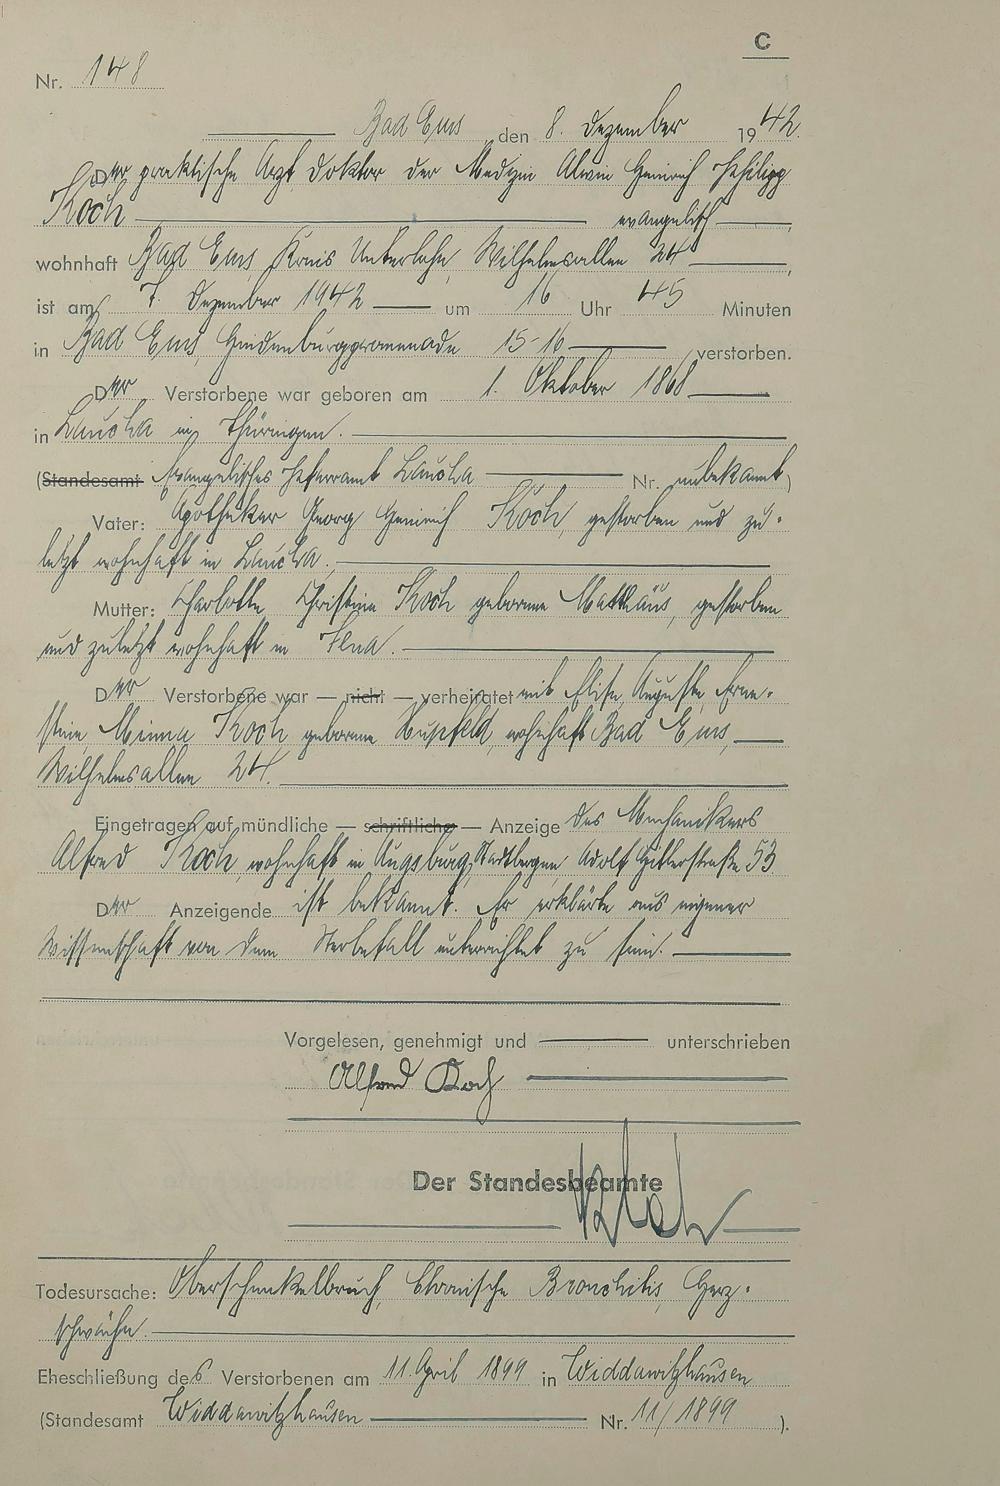 C
Nr. 148
Bad Ems den 8. Dezember 1942.
Der praktische Arzt Doktor der Medizin Alwin Heinrich Philipp
Koch evangelisch,
wohnhaft Bad Ems, Kreis Unterlahn, Wilhelmsallee 24,
ist am 7. Dezember 1942 um 16 Uhr 45 Minuten
in Bad Ems, Hindenburgpromenade 15-16 verstorben.
Der Verstorbene war geboren am 1. Oktober 1868
in Lauscha in Thüringen.
(Standesamt Evangelisches Pfarramt Lauscha Nr. unbekannt)
Vater: Apotheker Georg Heinrich Koch, gestorben und zu-
letzt wohnhaft in Lauscha.
Mutter: Charlotte Christine Koch geborene Matthäus, gestorben
und zuletzt wohnhaft in Jena.
Der Verstorbene war — nicht — verheiratet mit Elise, Auguste, Erne-
stine, Minna Koch geborene Hupfeld, wohnhaft Bad Ems,
Wilhelmsallee 24.
Eingetragen auf mündliche — schriftliche — Anzeige des Mechanikers
Alfred Koch, wohnhaft in Augsburg, Stadtbergen, Adolf Hitlerstraße 53
Der Anzeigende ist bekannt. Er erklärte aus eigener
Wissenschaft von dem Sterbefall unterrichtet zu sein.
Vorgelesen, genehmigt und unterschrieben
Alfred Koch
Der Standesbeamte
Todesursache: Oberschenkelbruch, Chronische Bronchitis, Herz-
schwäche.
Eheschließung des Verstorbenen am 11. April 1899 in Widdawitzhausen
(Standesamt Widdawitzhausen Nr. 11/1899).